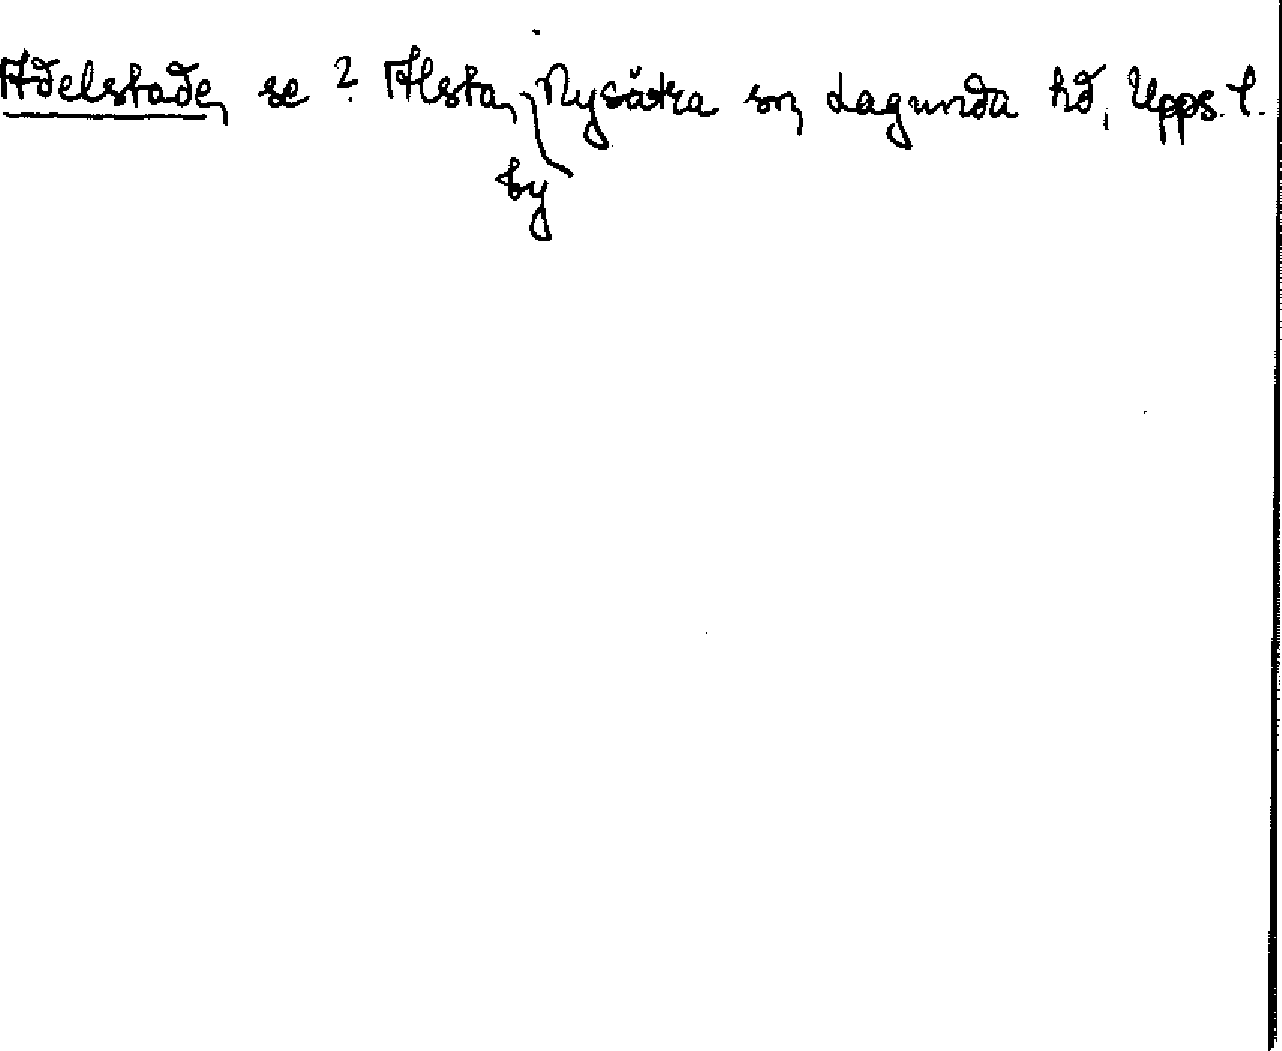 Adelstade, se ? Alsta, Nysätra sn, Lagunda hd, Upps. l.
by